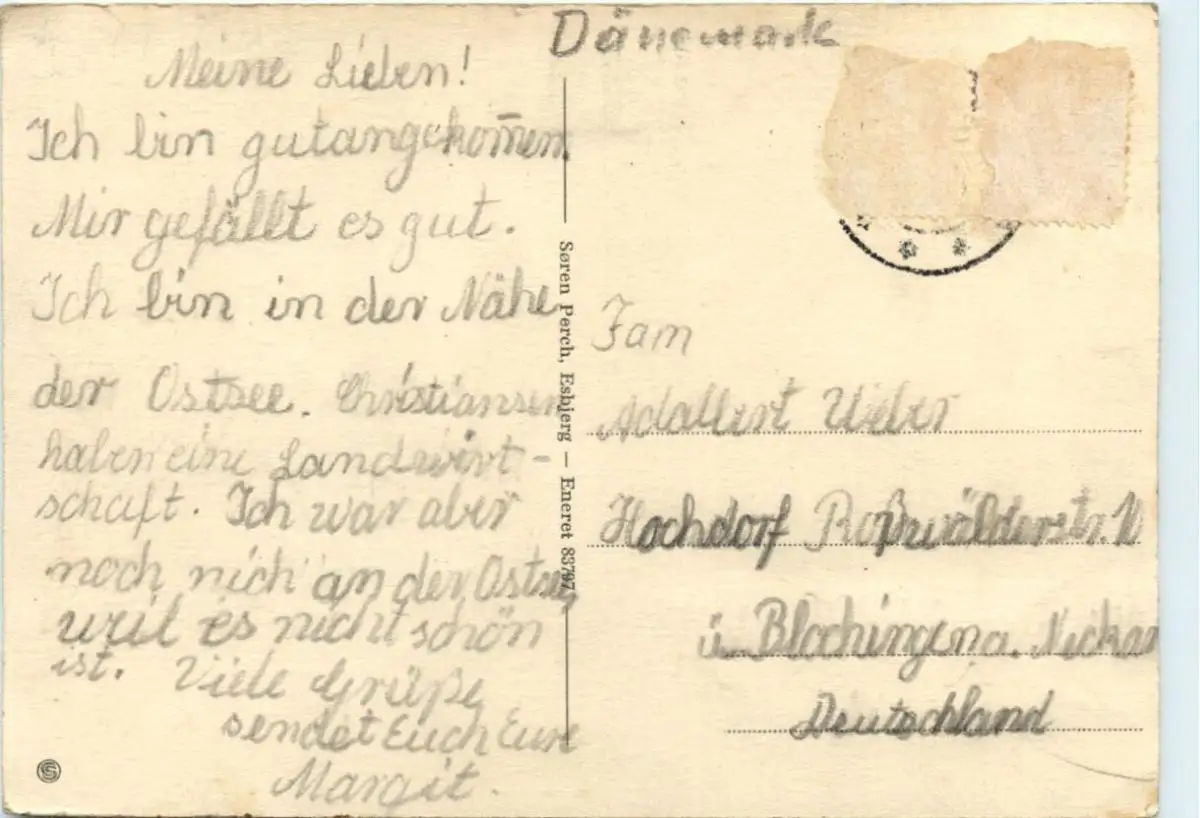 Dänemark
Meine Lieben!
Ich bin gutangekom̄en.
Mir gefällt es gut.
Ich bin in der Nähe
der Ostsee. Christiansen
haben eine Landwirt-
schaft. Ich war aber
noch nich an der Ostsee
weil es nicht schön
ist. Viele Grüße
sendet Euch Eure
Margit.
Søren Perch, Esbjerg — Eneret 83797
Fam
Adalbert Weber
Hochdorf Roßwälderstr.
ü. Blochingen a. Neckar
Deutschland